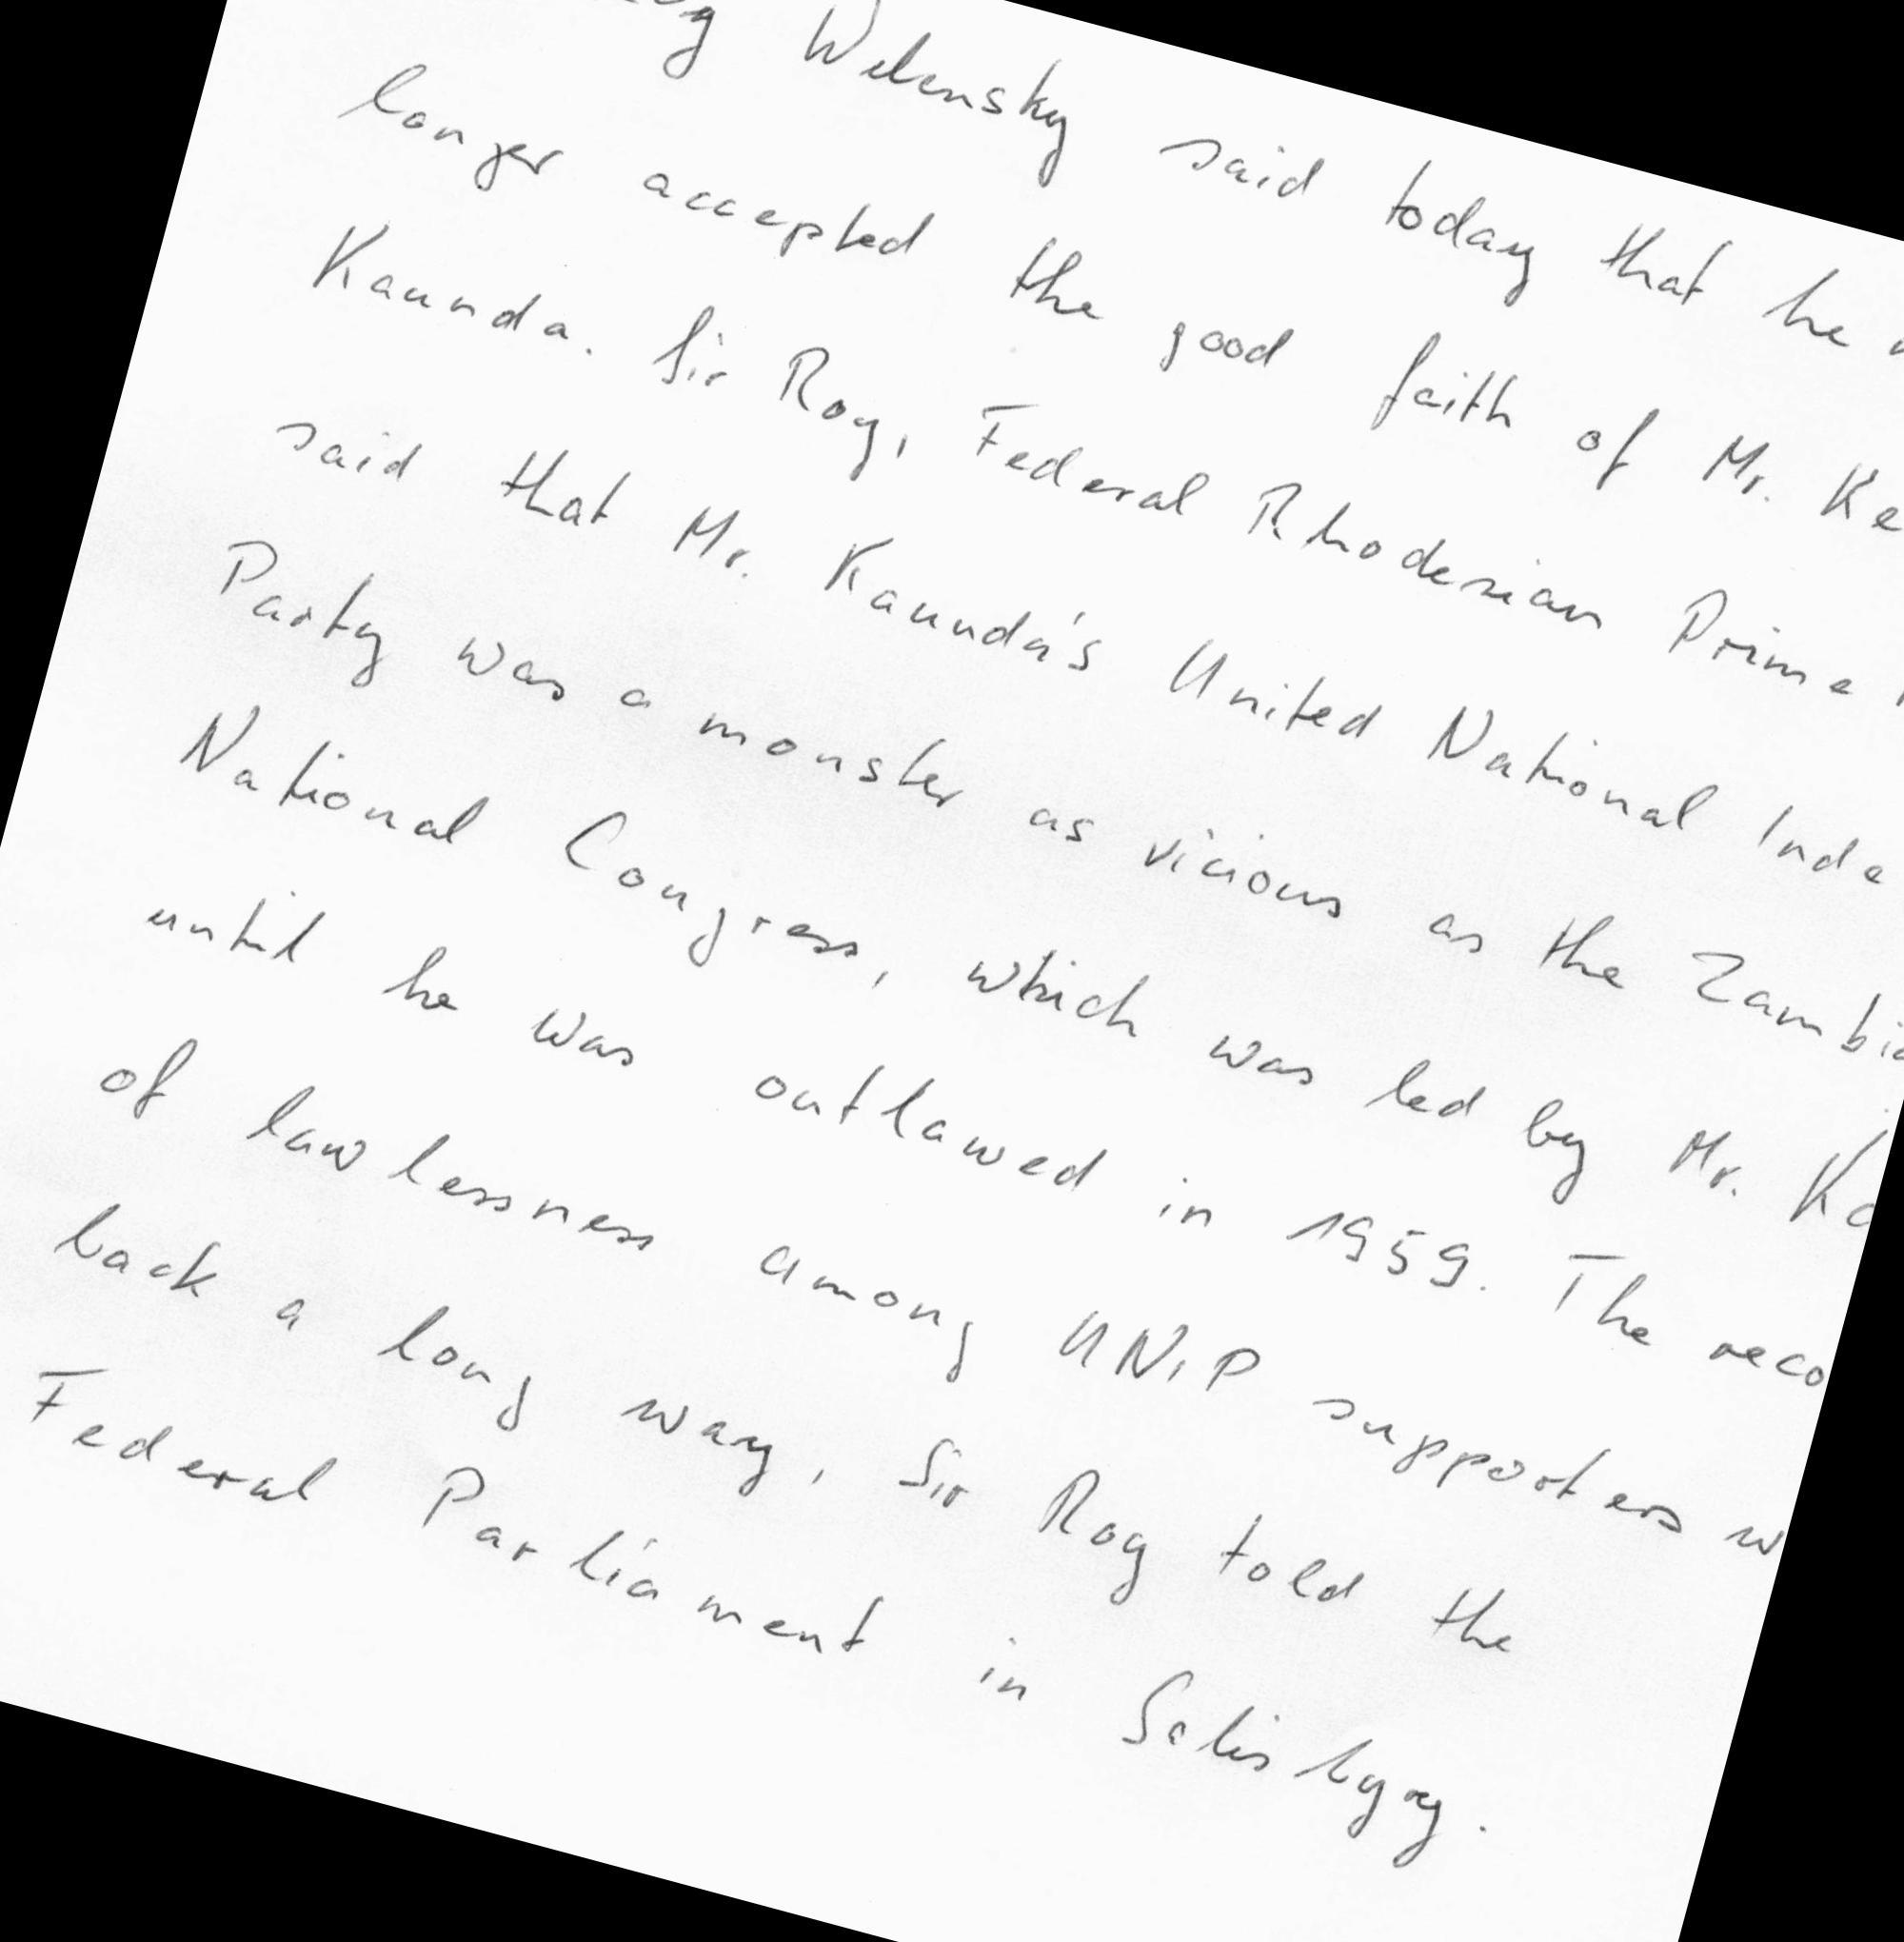 Welensky said today that he
longer accepted the good faith of Mr.
Kaunda. Sir Roy, Federal Rhodesian Prime
said that Mr. Kaunda's United National
Party was a monster as vicious as the
National Congress, which was led by Mr.
until he was outlawed in 1959. The
of lawlessness among UNIP supporters
back a long way, Sir Roy told the
Federal Parliament in Salisbyry.